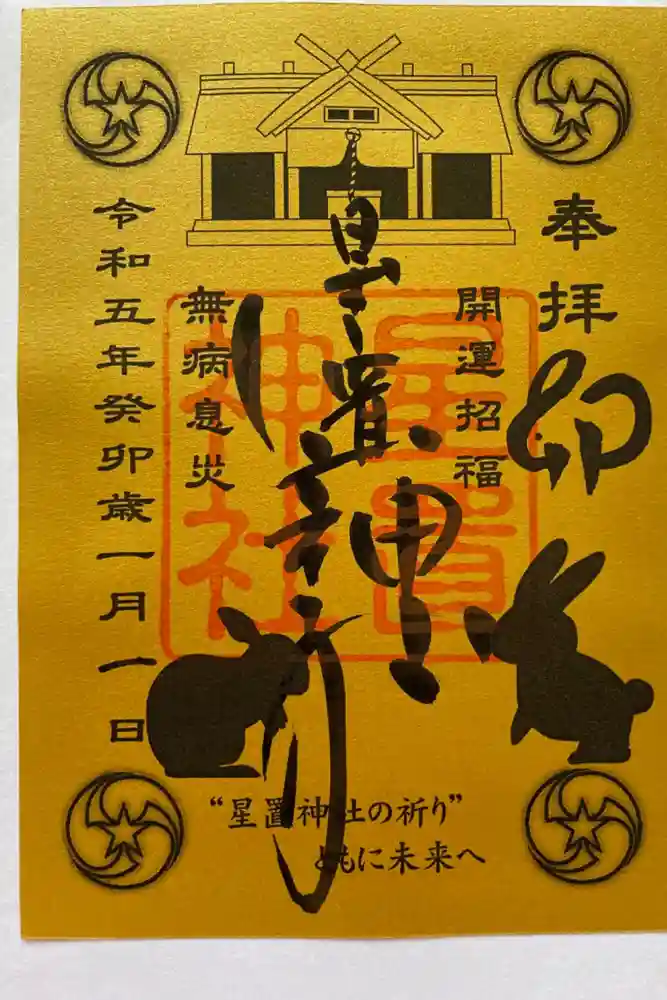 奉拝
卯
開運招福
星置
神社
無病息災
令和五年癸卯歳一月一日
“星置神社の祈り”
ともに未来へ